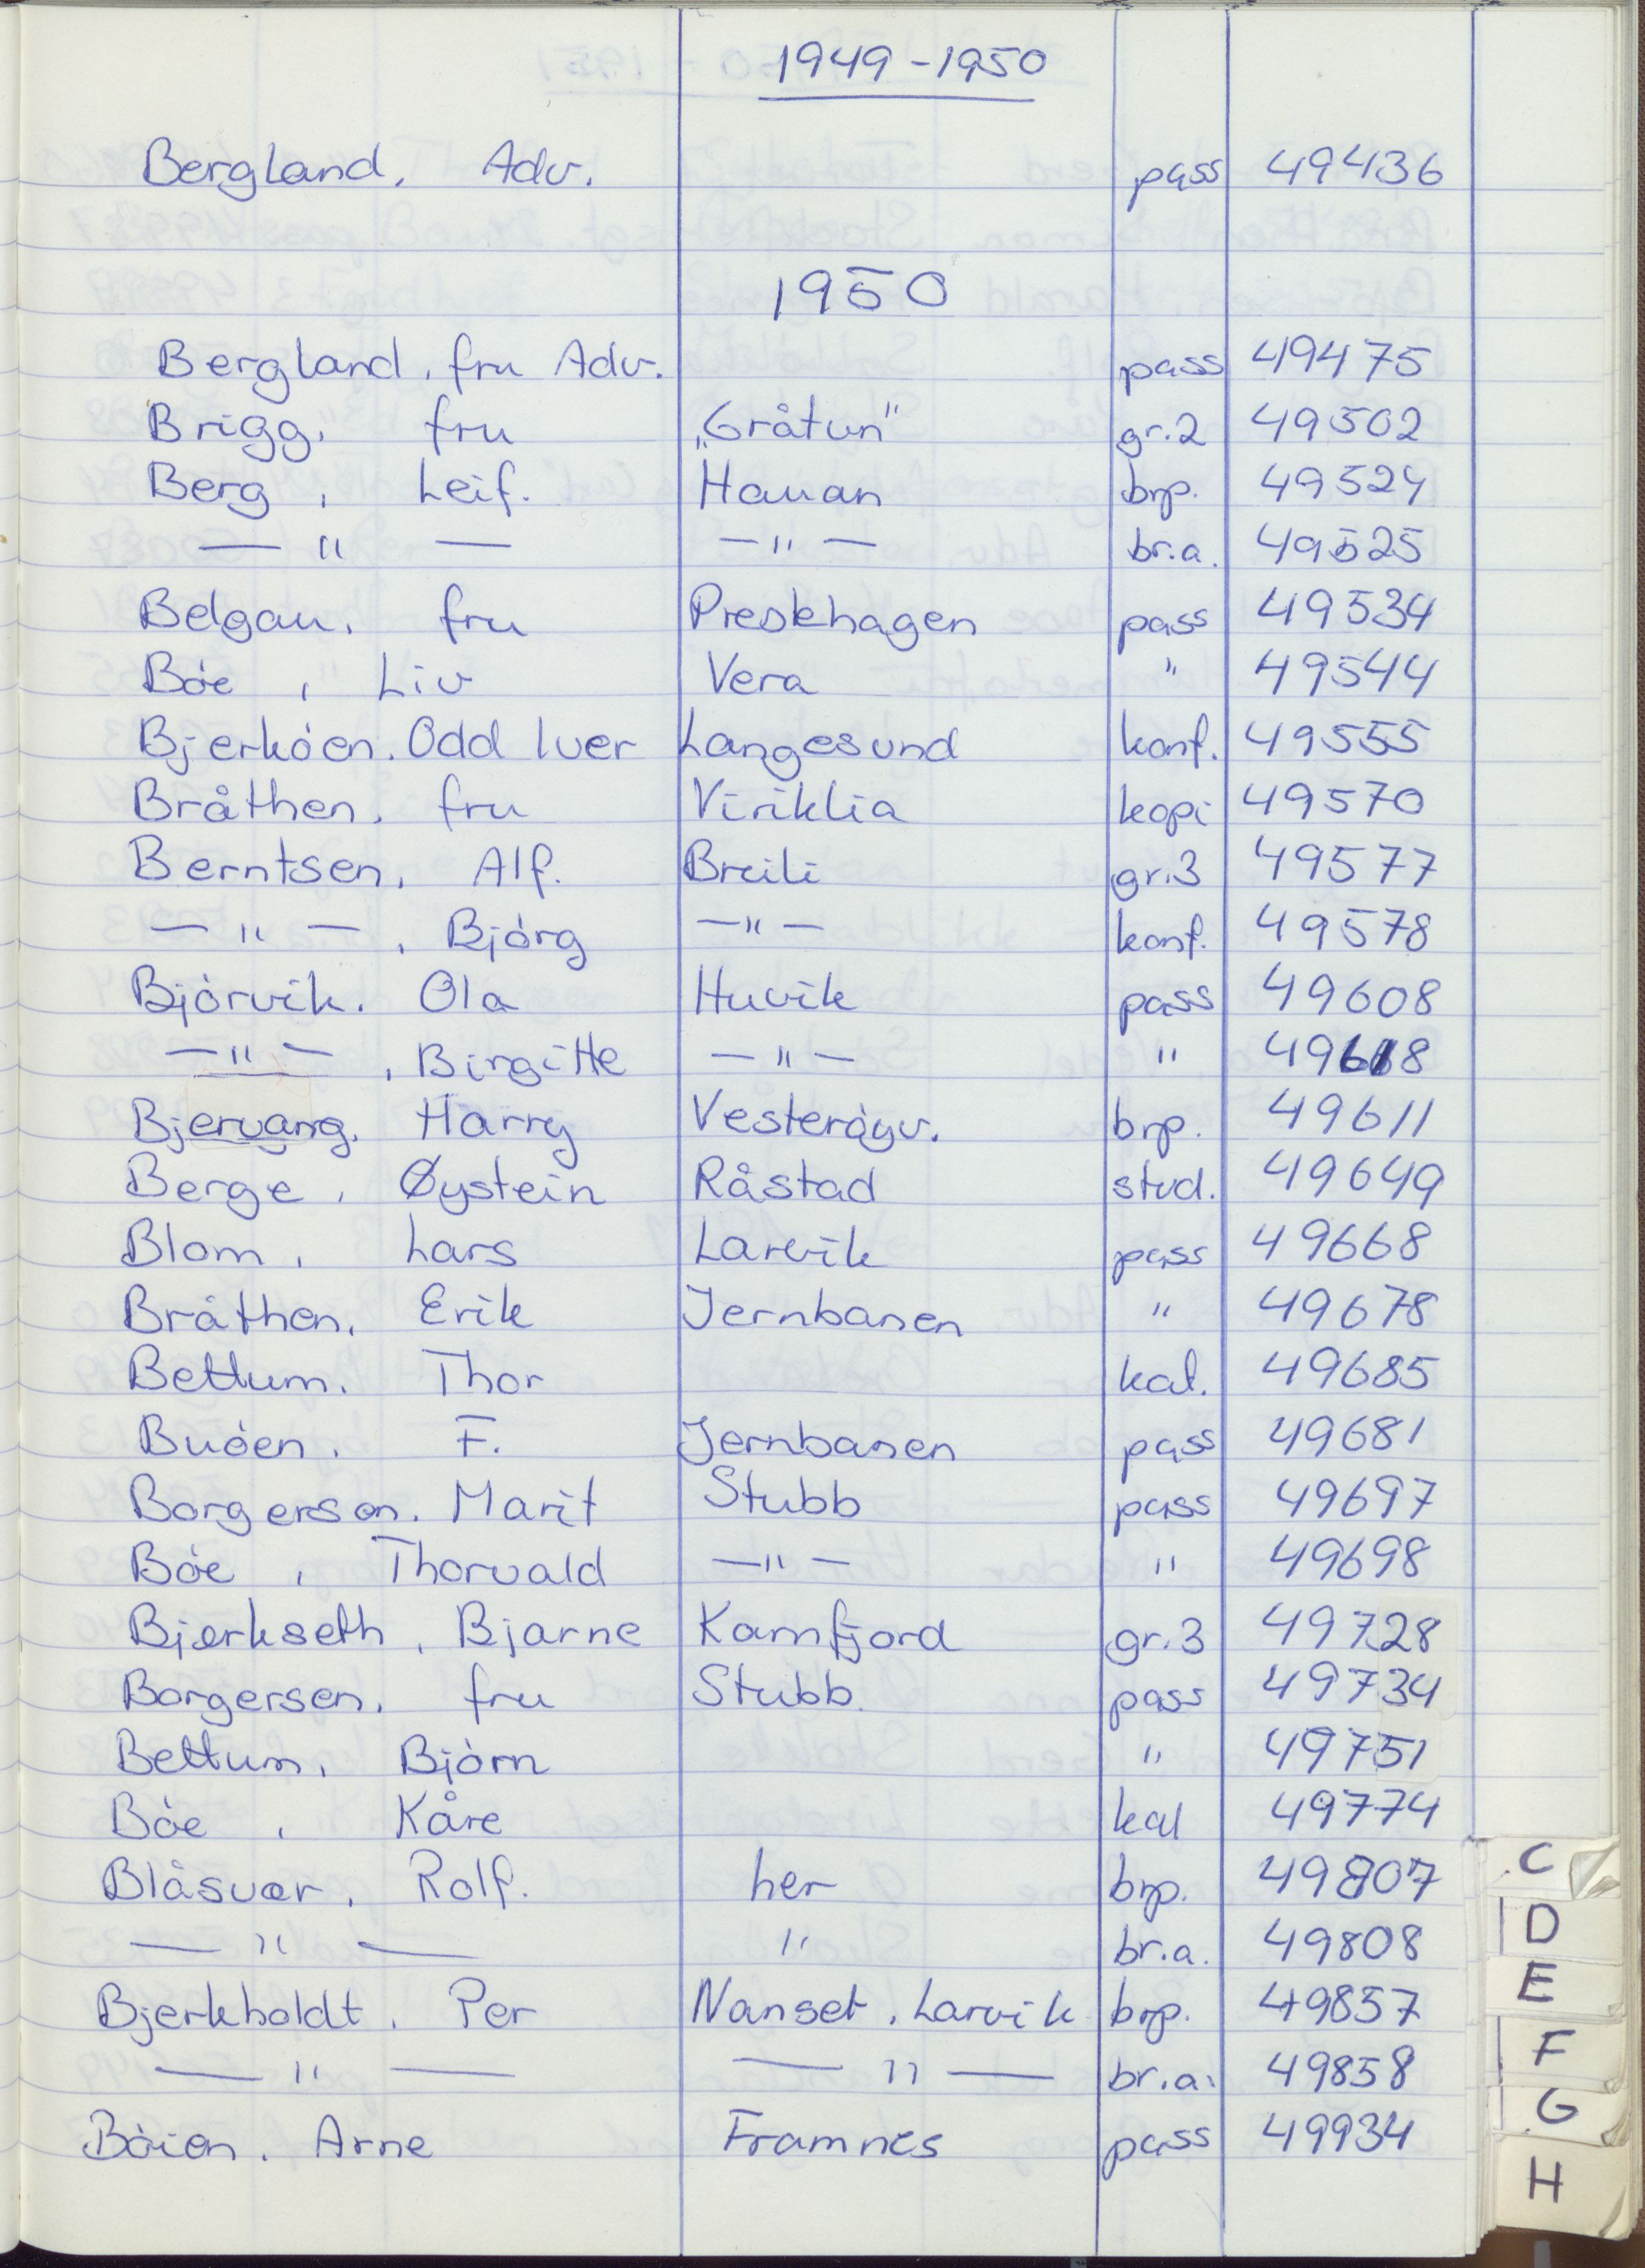 1949-1950
Bergland, Adv. pass 49436
1950
Bergland, fru Adv. pass 49475
Brigg, fru „Gråtun" gr.2 49502
Berg, Leif. Hauan brp. 49524
— " — — " — br.a. 49525
Belgau, fru Prestehagen pass 49534
Bóe, Liv Vera " 49544
Bjerkóen, Odd Iver Langesund konf. 49555
Bråthen, fru Viriklia kopi 49570
Berntsen, Alf. Breili gr.3 49577
— " —, Bjórg — " — konf. 49578
Bjórvik, Ola Huvik pass 49608
— " —, Birgitte — " — " 49618
Bjervang, Harry Vesteróyv. brp. 49611
Berge, Øystein Råstad stud. 49649
Blom, Lars Larvik pass 49668
Bråthen, Erik Jernbanen " 49678
Bettum, Thor kal. 49685
Buóen, F. Jernbanen pass 49681
Borgersen, Marit Stubb pass 49697
Bóe, Thorvald — " — " 49698
Bjerkseth, Bjarne Kamfjord gr.3 49728
Borgersen, fru Stubb. pass 49734
Bettum, Bjórn " 49751
Bóe, Kåre kal 49774
Blåsvær, Rolf. her brp. 49807
— " — " br.a. 49808
Bjerkholdt, Per Nanset, Larvik brp. 49857
— " — — " — br.a. 49858
Bóien, Arne Framnes pass 49934
C
D
E
F
G
H